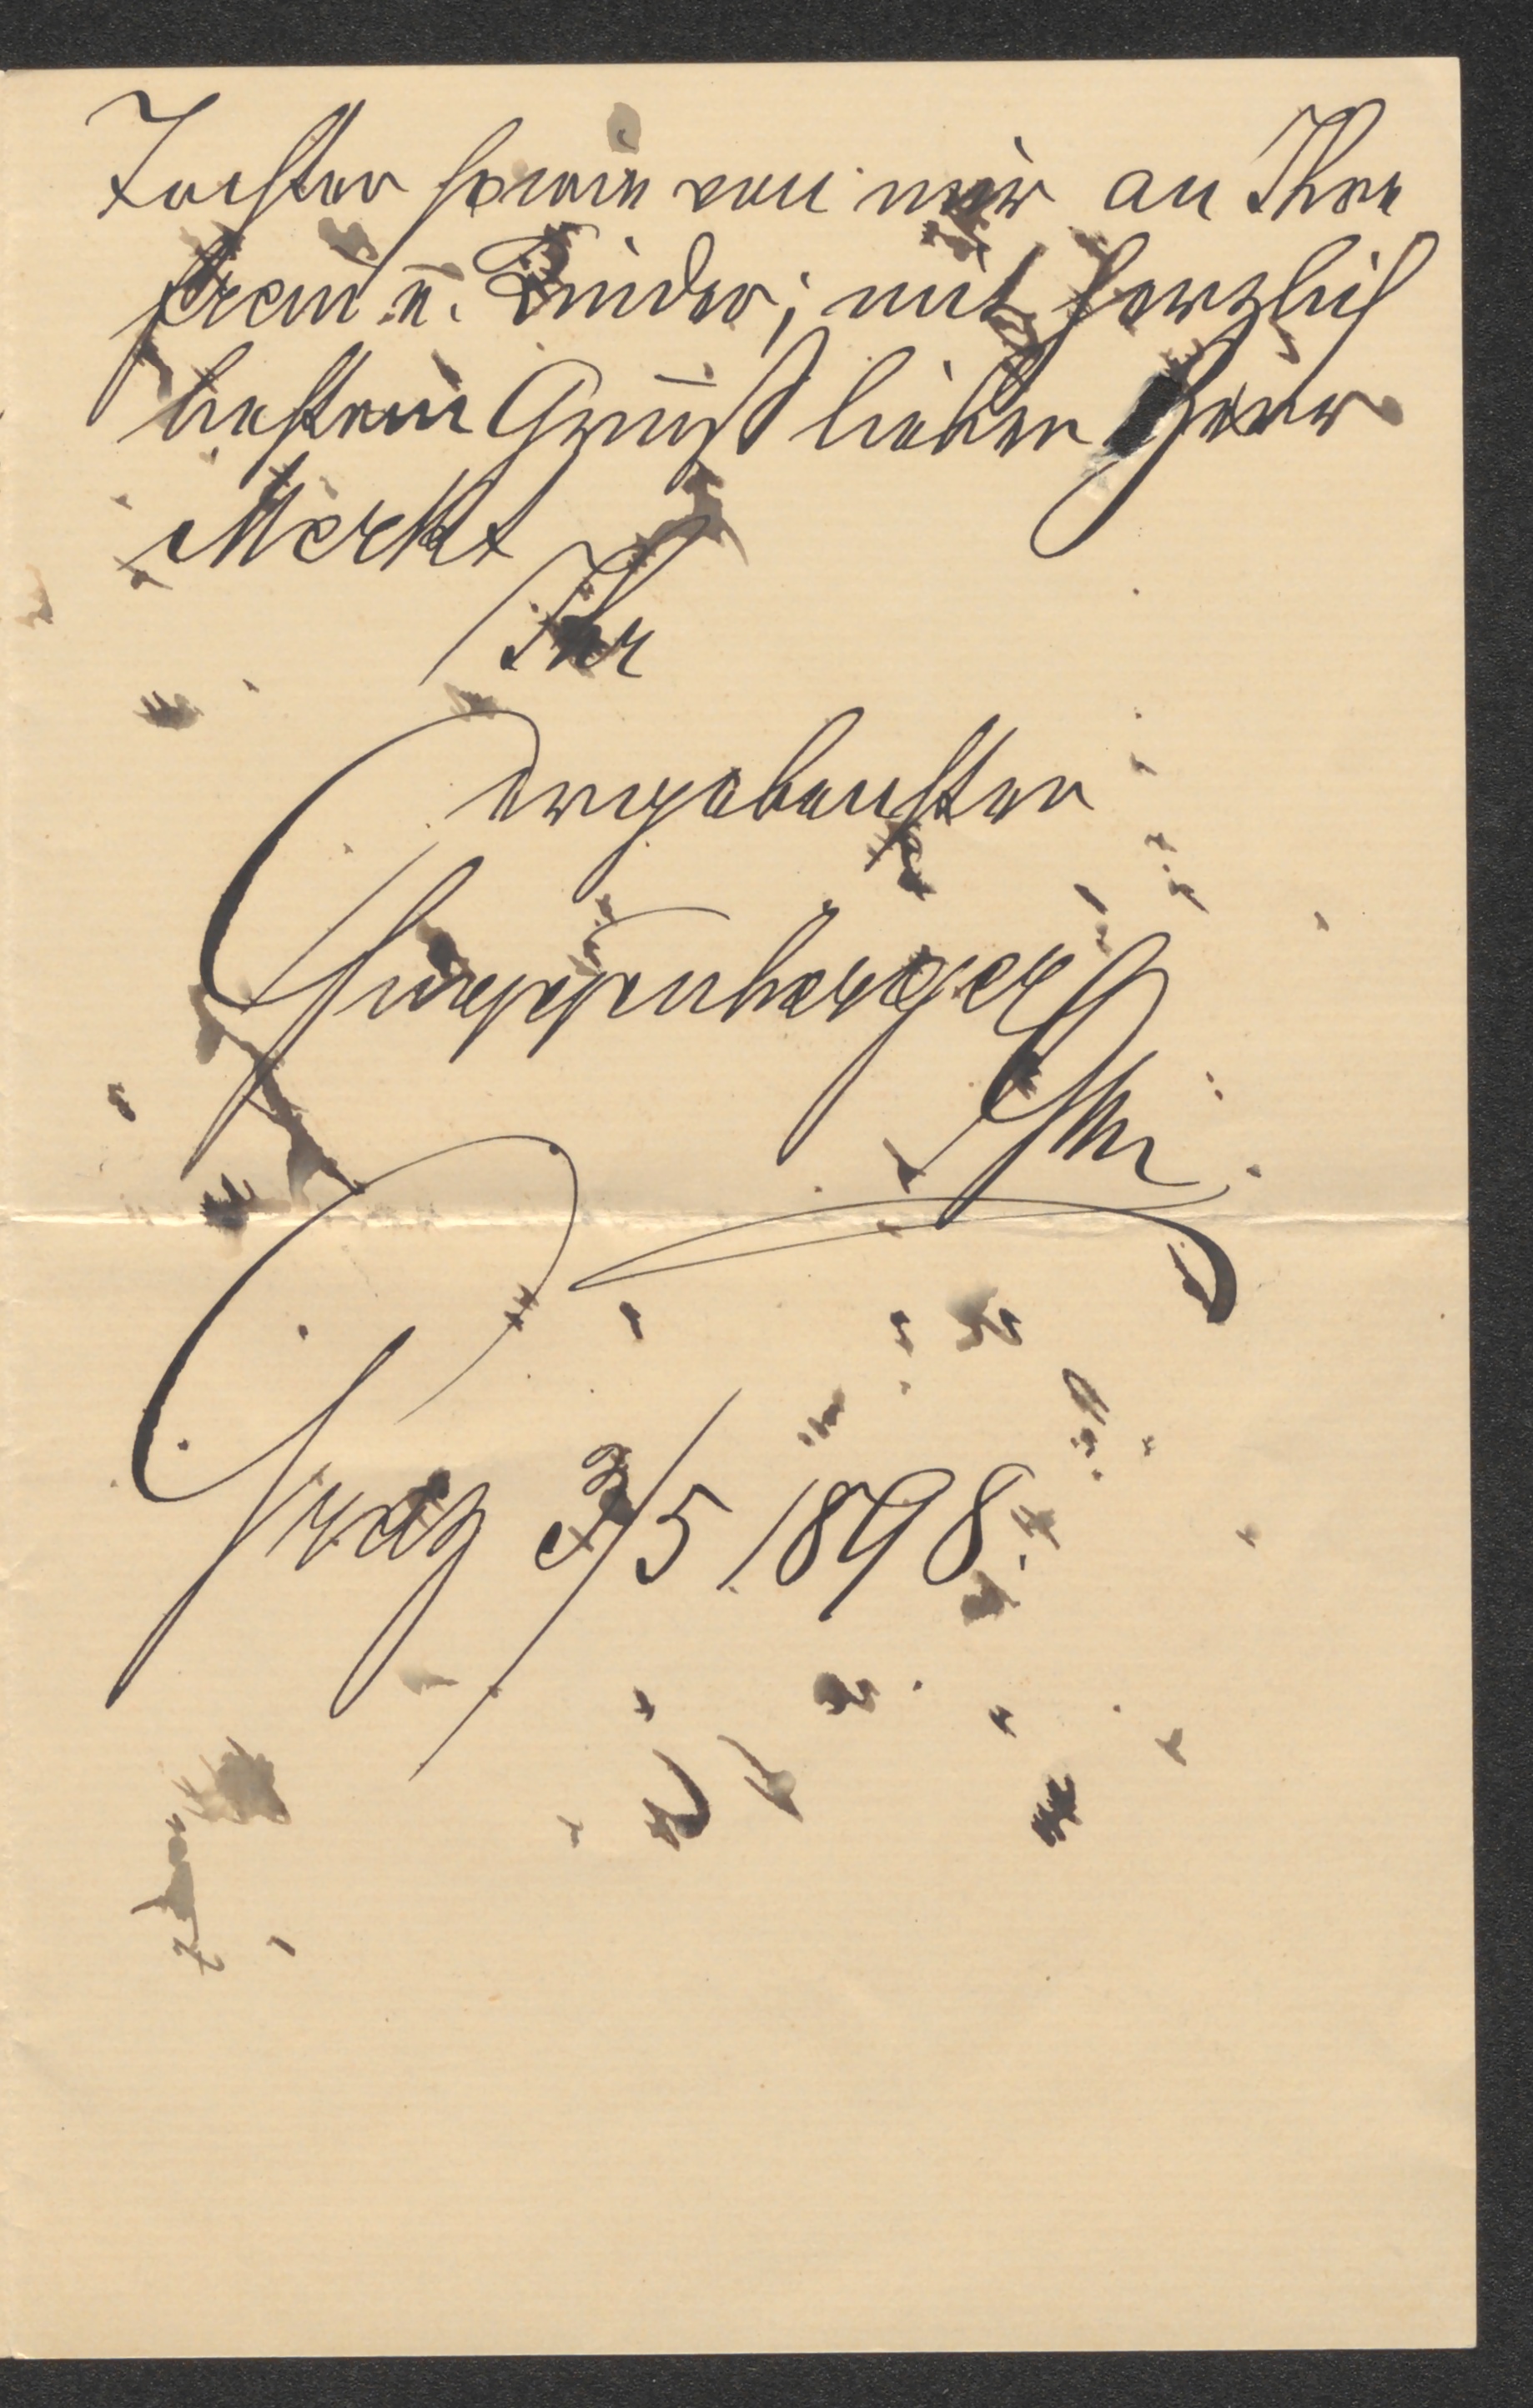 Tochter sowie von mir an Ihre
Frau u. Kinder; mit herzlich
bestem Gruß lieber Herr
Merkt
Ihr
ergebenster
Graz 3/5 1898.